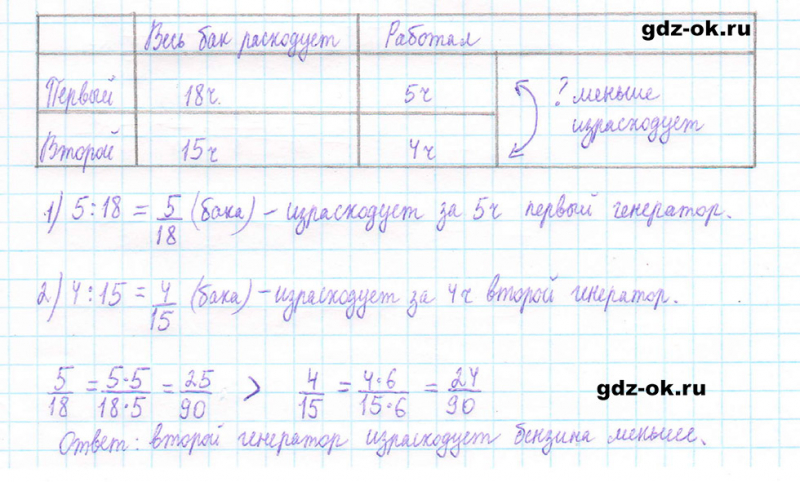 gdz-ok.ru
Весь бак расходует Работал
Первый 18ч. 5ч ? меньше
израсходует
Второй 15ч 4ч
1) 5:18 = 5/18 (бака) - израсходует за 5ч первый генератор.
2) 4:15 = 4/15 (бака) - израсходует за 4ч второй генератор.
5/18 = 5·5/18·5 = 25/90 > 4/15 = 4·6/15·6 = 24/90
gdz-ok.ru
Ответ: второй генератор израсходует бензина меньше.